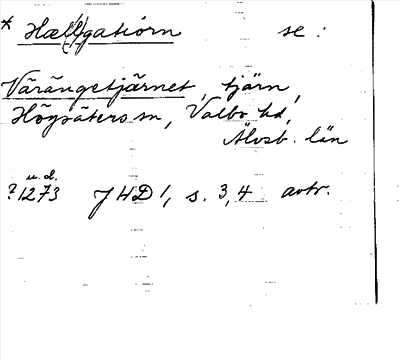 * Hæl(l)gatiorn se :
Värängetjärnet, tjärn,
Högsäters sn, Valbo hd,
Älvsb. län
u.d.
?1273 JHD 1, s. 3,4 avtr.